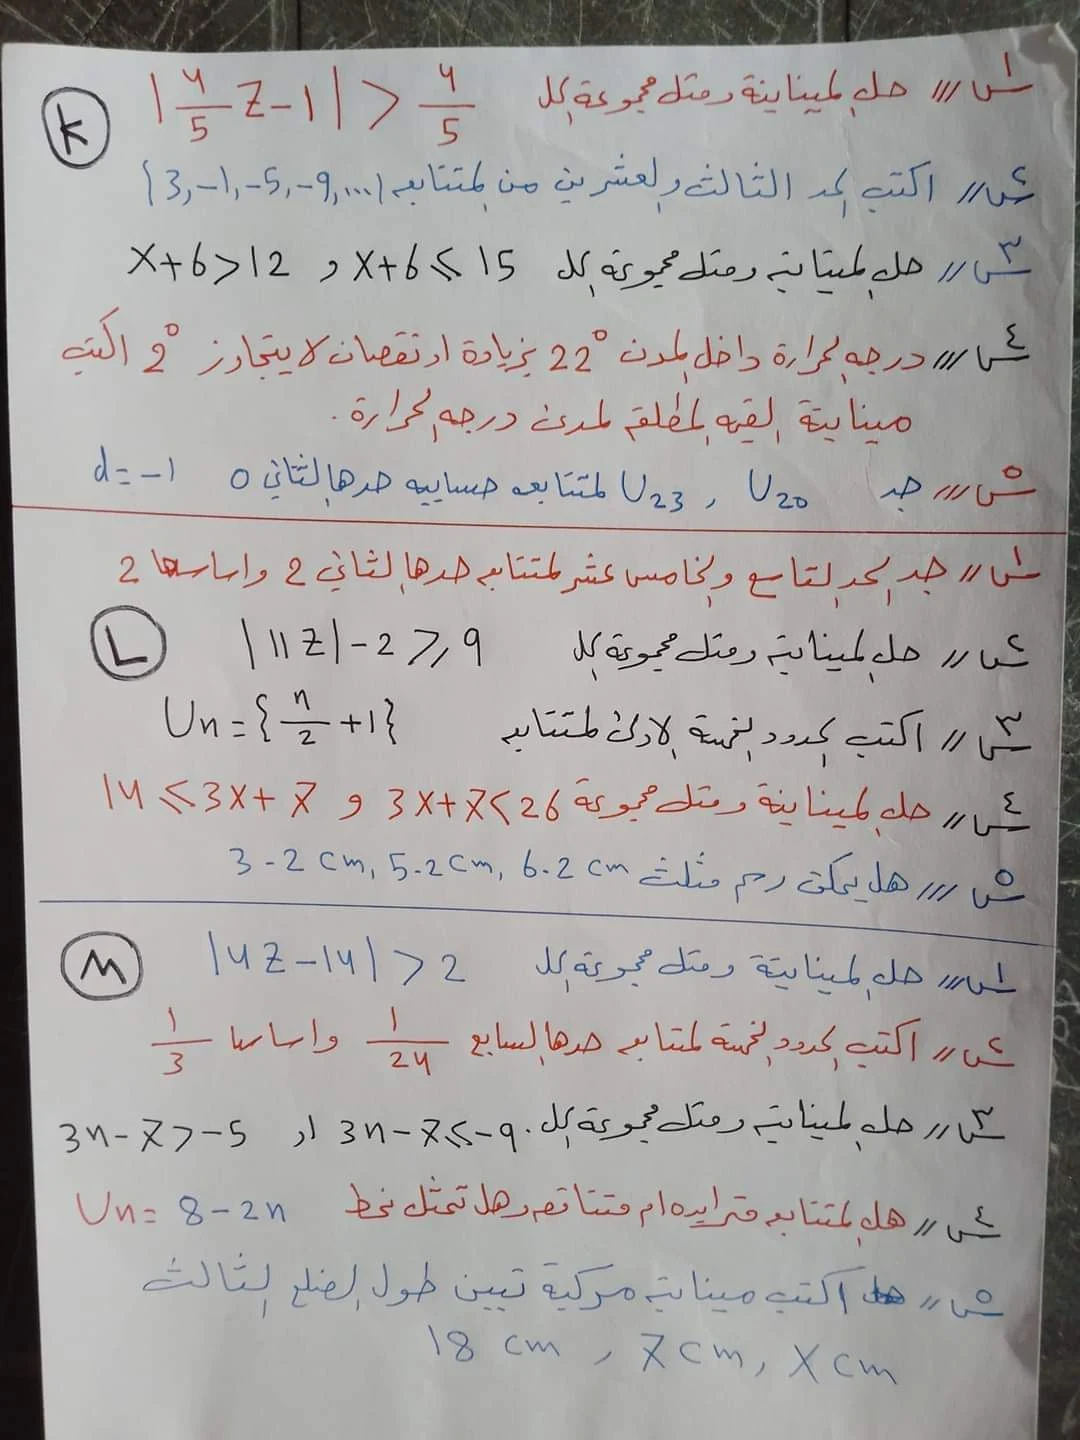 K
س١// حل المتباينة ومثل مجموعة الحل |4/5 Z - 1| > 4/5
س٢// اكتب الحد الثالث والعشرين من المتتابعه {3, -1, -5, -9, ...}
س٣// حل المتباينة ومثل مجموعة الحل x+6≤15 و x+6>12
س٤// درجه الحرارة داخل المدن 22° بزيادة او نقصان لا يتجاوز 2° اكتب
مبناينة القيمه المطلقه لمدى درجه الحرارة .
س٥// جد U20 , U23 لمتتابعه حسابيه حدها الثاني 0 d=-1
س١// جد الحد التاسع والخامس عشر لمتتابعه حدها الثاني 2 واساسها 2
L
س٢// حل المتباينة ومثل مجموعة الحل |11Z|-2≥9
س٣// اكتب الحدود الخمسة الاولى لمتتابعه Un={n/2+1}
س٤// حل المتباينة ومثل مجموعة 3x+7<26 و 14≤3x+7
س٥// هل يمكن رسم مثلث 3-2 cm, 5.2 cm, 6.2 cm
M
س١// حل المتباينة ومثل مجموعة الحل |4Z-14|>2
س٢// اكتب الحدود الخمسة لمتتابعه حدها السابع 1/24 واساسها 1/3
س٣// حل المتباينة ومثل مجموعة الحل. 3n-7≤-9 او 3n-7>-5
س٤// هل المتتابعه متزايده ام متناقصه وهل تمثل نمط Un= 8-2n
س٥// اكتب متباينة مركبة تبين طول الضلع الثالث
18 cm , 7cm, Xcm